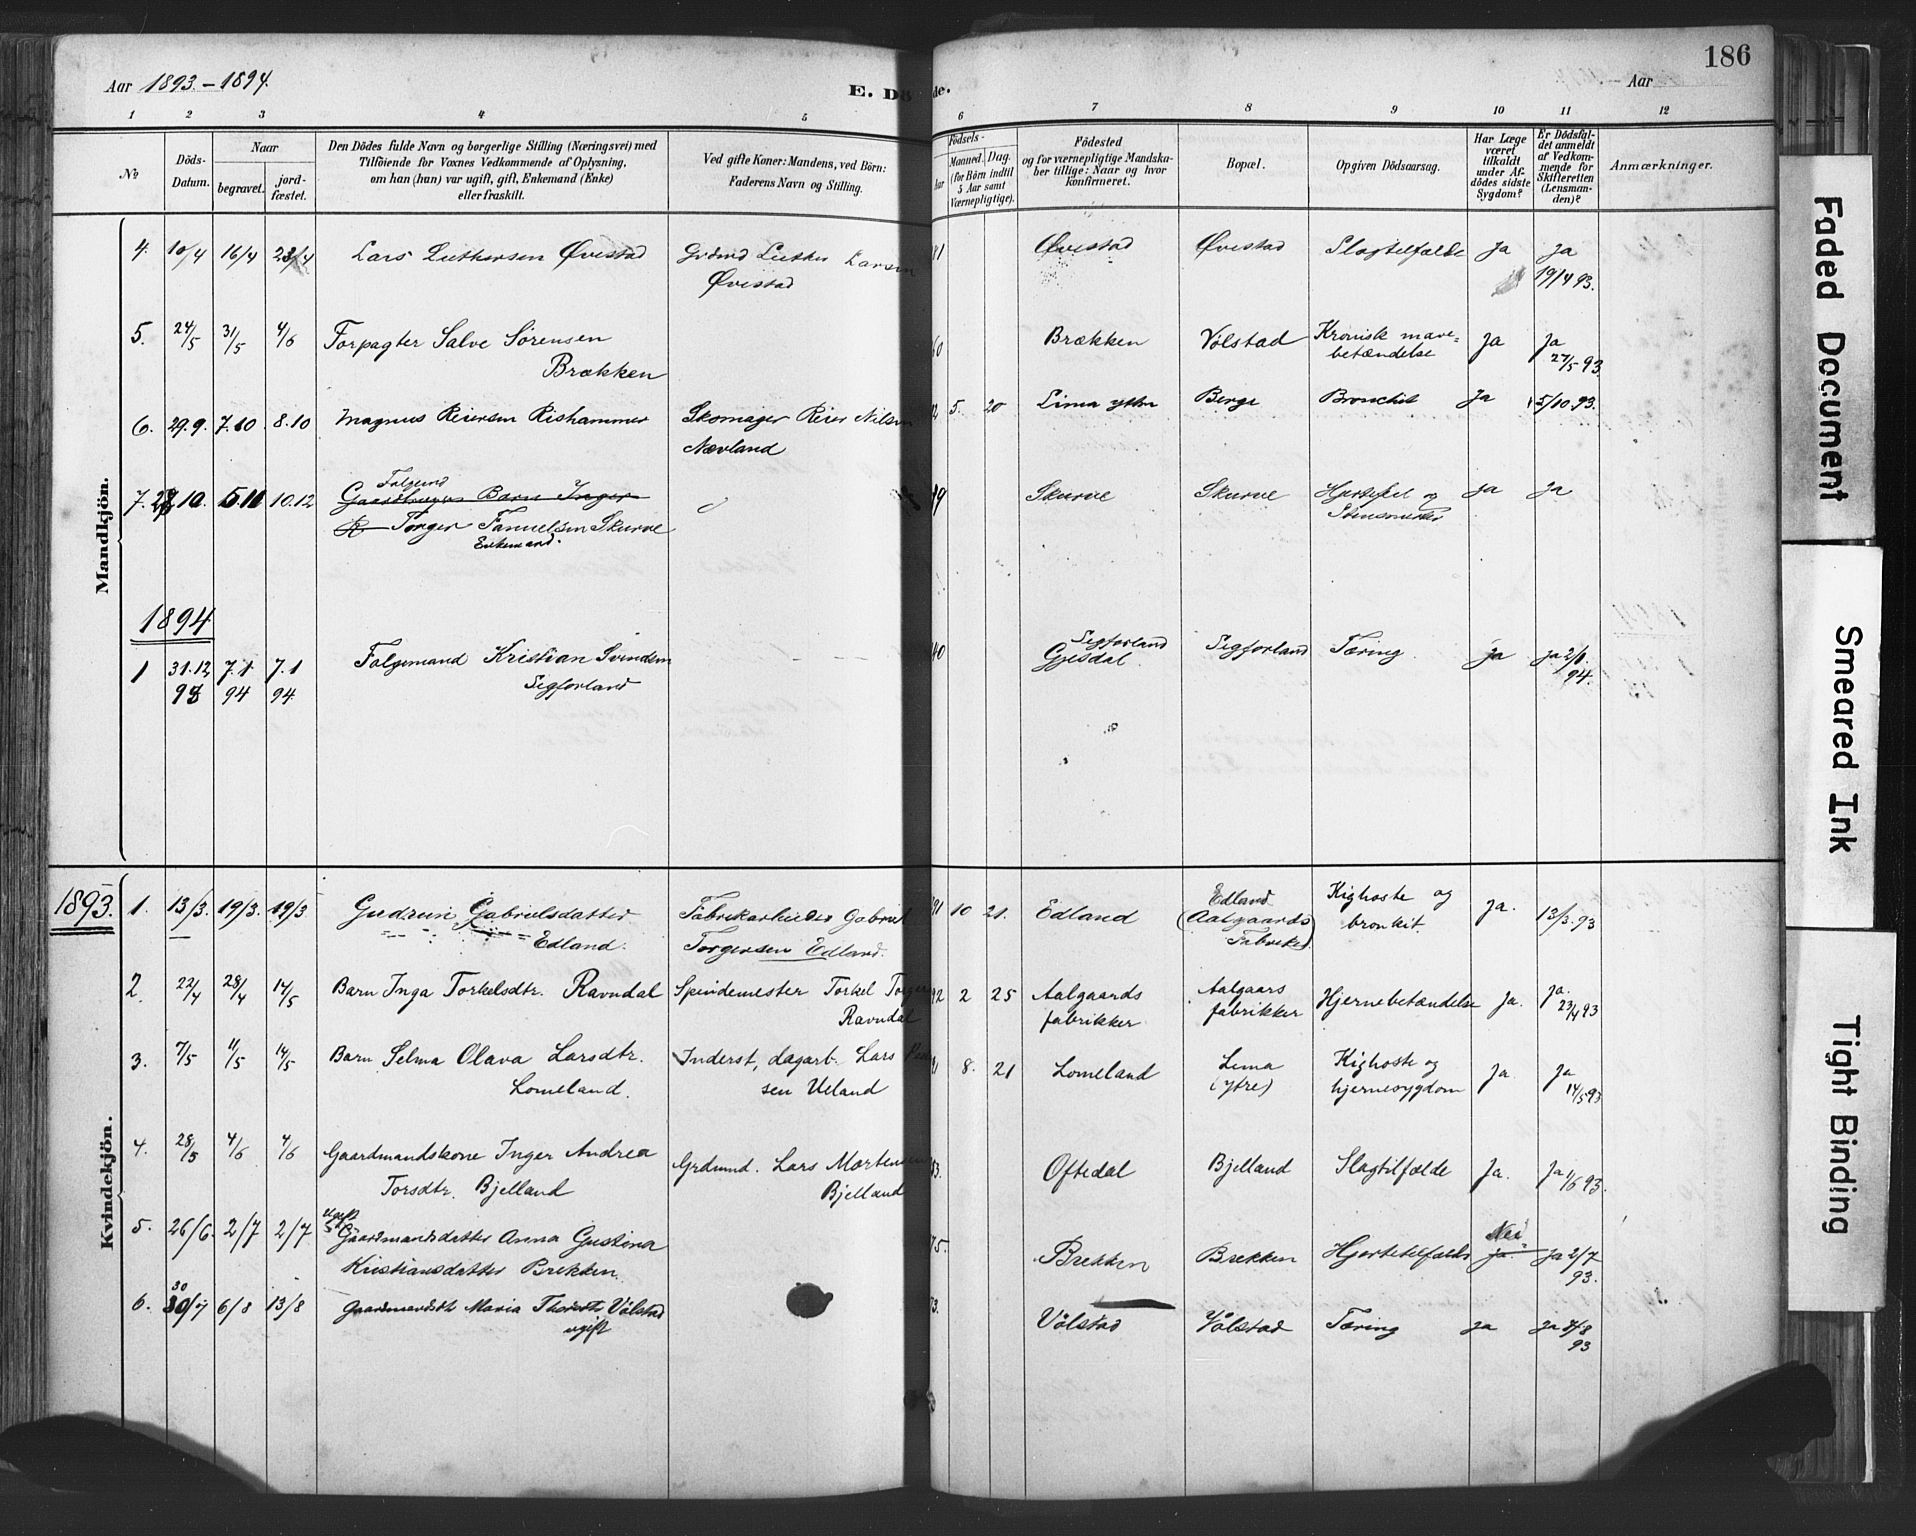 Aar 1893-1894.
E. Dö
de.
Aar
186
1 2 3 4 5 6 7 8 9 10 11 12
No
Döds-
Datum.
Naar
begravet.
jord-
fæstet.
Den Dödes fulde Navn og borgerlige Stilling (Næringsvei) med
Tilföiende for Voxnes Vedkommende af Oplysning,
om han (hun) var ugift, gift, Enkemand (Enke)
eller fraskilt.
Ved gifte Koner: Mandens, ved Börn:
Faderens Navn og Stilling.
Födsels-
Aar
Maaned. Dag.
(for Börn indtil
5 Aar samt
Værnepligtige).
Födested
og for værnepligtige Mandska-
ber tillige: Naar og hvor
konfirmeret.
Bopæl.
Opgiven Dödsaarsag.
Har Læge
været
tilkaldt
under Af-
dödes sidste
Sygdom?
Er Dödsfal-
det anmeldt
af Vedkom-
mende for
Skifteretten
(Lensman-
den)?
Anmærkninger.
Mandkjön.
4. 10/4 16/4 23/4 Lars Luthersen Øvestad Grdmd Luther Larsen 81 Øvestad Øvestad Slagtilfælde Ja Ja
Øvestad 19/4 93.
5. 24/5 31/5 4/6 Forpagter Salve Sørensen 60 Brækken Vølstad Kronisk mave- Ja Ja
Brækken betændelse 27/5 93.
6. 29.9. 7.10 8.10 Magnus Reiersen Rishammer Skomager Reier Nilsen 92 5. 20 Lima ytre Berge Bronchit Ja 5/10.93.
Nævland
Folgemd
7. 10. 5.11 10.12 Gaardbruger Barn Inger 19 Skurve Skurve Hjertefeil og Ja Ja
Torger Tanuelsen Skurve
Enkemand.
1894
1 31.12 7.1 7.1 Folgemand Kristian Svindsen 40 Segforland Segforland Tæring. Ja Ja 2/1.
93 94 94. Segforland Gjesdal. 94.
Kvindekjön.
1893. 1. 13/3. 19/3. 19/3. Gudrun Gabrielsdatter Fabrikarbeider Gabriel 91 10 21. Edland Edland Kighoste og Ja. 13/3.93
Edland. Torgersen Edland. (Aalgaards bronkit.
Fabrikker)
2. 22/4 28/4 14/5 Barn Inga Torkelsdtr. Ravndal Spindemester Torkel Torger 92 2 25 Aalgaards Aalgaars Hjernebetændelse Ja. Ja.
Ravndal fabrikker fabrikker 23/4 93
3. 7/5 11/5 14/5 Barn Selma Olava Larsdtr. Inderst, dagarb. Lars 91 8. 21 Lomeland Lima Kighoste og Ja. Ja
Lomeland. sen Ueland (ytre) hjernesygdom 14/5 93
4. 28/5 4/6 4/6 Gaardmandskone Inger Andrea Grdmnd. Lars Mortensen 53. Oftedal Bjelland Slagtilfælde Ja. Ja 1/6 93.
Torsdtr. Bjelland Bjelland
ugift
5. 26/6. 2/7 2/7 Gaardmandsdatter Anna Gustina 75. Brekken Brekken Hjertetilfælde Nei Ja. Ja 2/7
Kristiansdatter Brekken. 93.
30
6. 30/7 6/8 13/8 Gaardmandsdt Maria Thoresdtr Vølstad 73. Vølstad Vølstad Tæring Ja Ja /8
ugift 93
Faded Document
Smeared Ink
Tight Binding